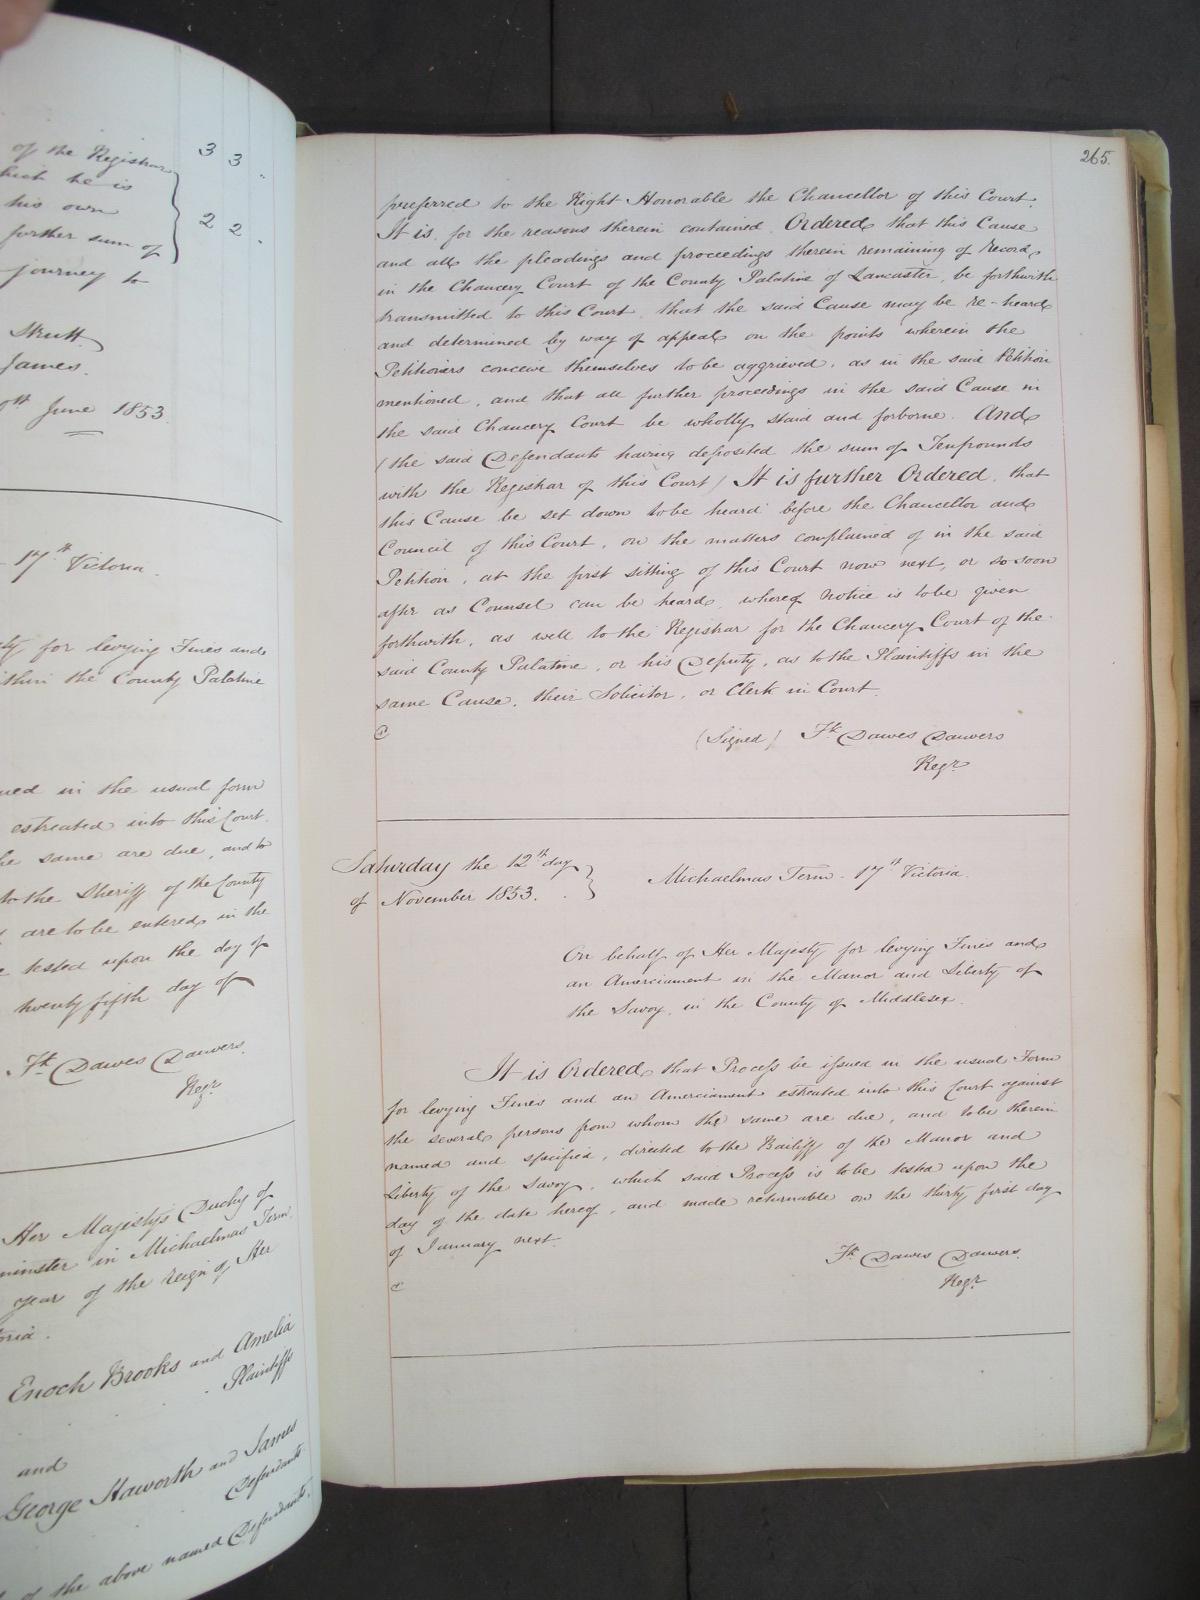 of the Registrar 3 3 .
which he is
his own 2 2 .
further sum of
journey to
Strutt
James.
June 1853
17th Victoria.
for levying Fines and
within the County Palatine
in the usual form
estreated into this Court.
the same are due, and to
to the Sheriff of the County
are to be entered in the
tested upon the day of
twenty fifth day of
Fk. Dawes Danvers.
Regr.
Her Majestys Duchy of
in Michaelmas Term
year of the reign of Her
Enoch Brooks and Amelia
Plaintiffs
and
George Haworth and James
Defendants
of the above named Defendants.
265.
preferred to the Right Honorable the Chancellor of this Court.
It is, for the reasons therein contained, Ordered that this Cause
and all the pleadings and proceedings therein remaining of Record
in the Chancery Court of the County Palatine of Lancaster, be forthwith
transmitted to this Court, that the said Cause may be re-heard
and determined by way of appeal on the points wherein the
Petitioners conceive themselves to be aggrieved, as in the said Petition
mentioned, and that all further proceedings in the said Cause in
the said Chancery Court be wholly staid and forborne. And
(the said Defendants having deposited the sum of Ten pounds
with the Registrar of this Court) It is further Ordered, that
this Cause be set down to be heard before the Chancellor and
Council of this Court, on the matters complained of in the said
Petition, at the first sitting of this Court now next, or so soon
after as Counsel can be heard, whereof notice is to be given
forthwith, as well to the Registrar for the Chancery Court of the
said County Palatine, or his Deputy, as to the Plaintiffs in the
same Cause, their Solicitor, or Clerk in Court.
(Signed) Fk. Dawes Danvers
Regr.
Saturday the 12th day
of November 1853.
Michaelmas Term - 17th Victoria.
On behalf of Her Majesty for levying Fines and
an Amerciament in the Manor and Liberty of
the Savoy, in the County of Middlesex.
It is Ordered that Process be issued in the usual Form
for levying Fines and an Amerciament estreated into this Court against
the several persons from whom the same are due, and to be therein
named and specified, directed to the Bailiff of the Manor and
Liberty of the Savoy, which said Process is to be tested upon the
day of the date hereof, and made returnable on the thirty first day
of January next.
Fk. Dawes Danvers.
Regr.